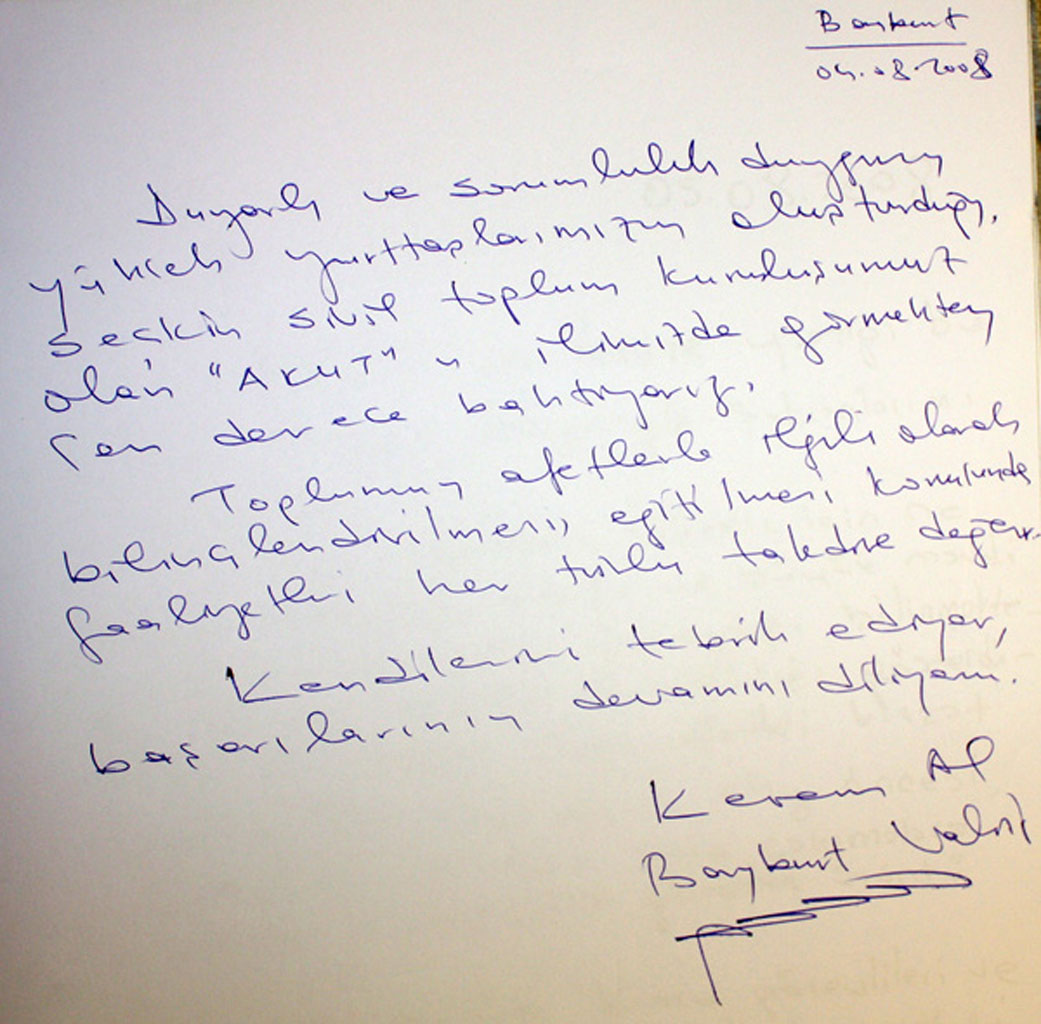 Bayburt
04.08.2008
Duyarlı ve sorumluluk duygusu
yüksek yurttaşlarımızın oluşturduğu,
seçkin sivil toplum kuruluşumuz
olan "AKUT" u ilimizde görmekten
son derece bahtiyarız.
Toplumun afetlerle ilgili olarak
bilinçlendirilmesi, eğitilmesi konusunda
faaliyetleri her türlü takdire değer.
Kendilerini tebrik ediyor,
başarılarının devamını diliyorum.
Kerem Al
Bayburt Valisi